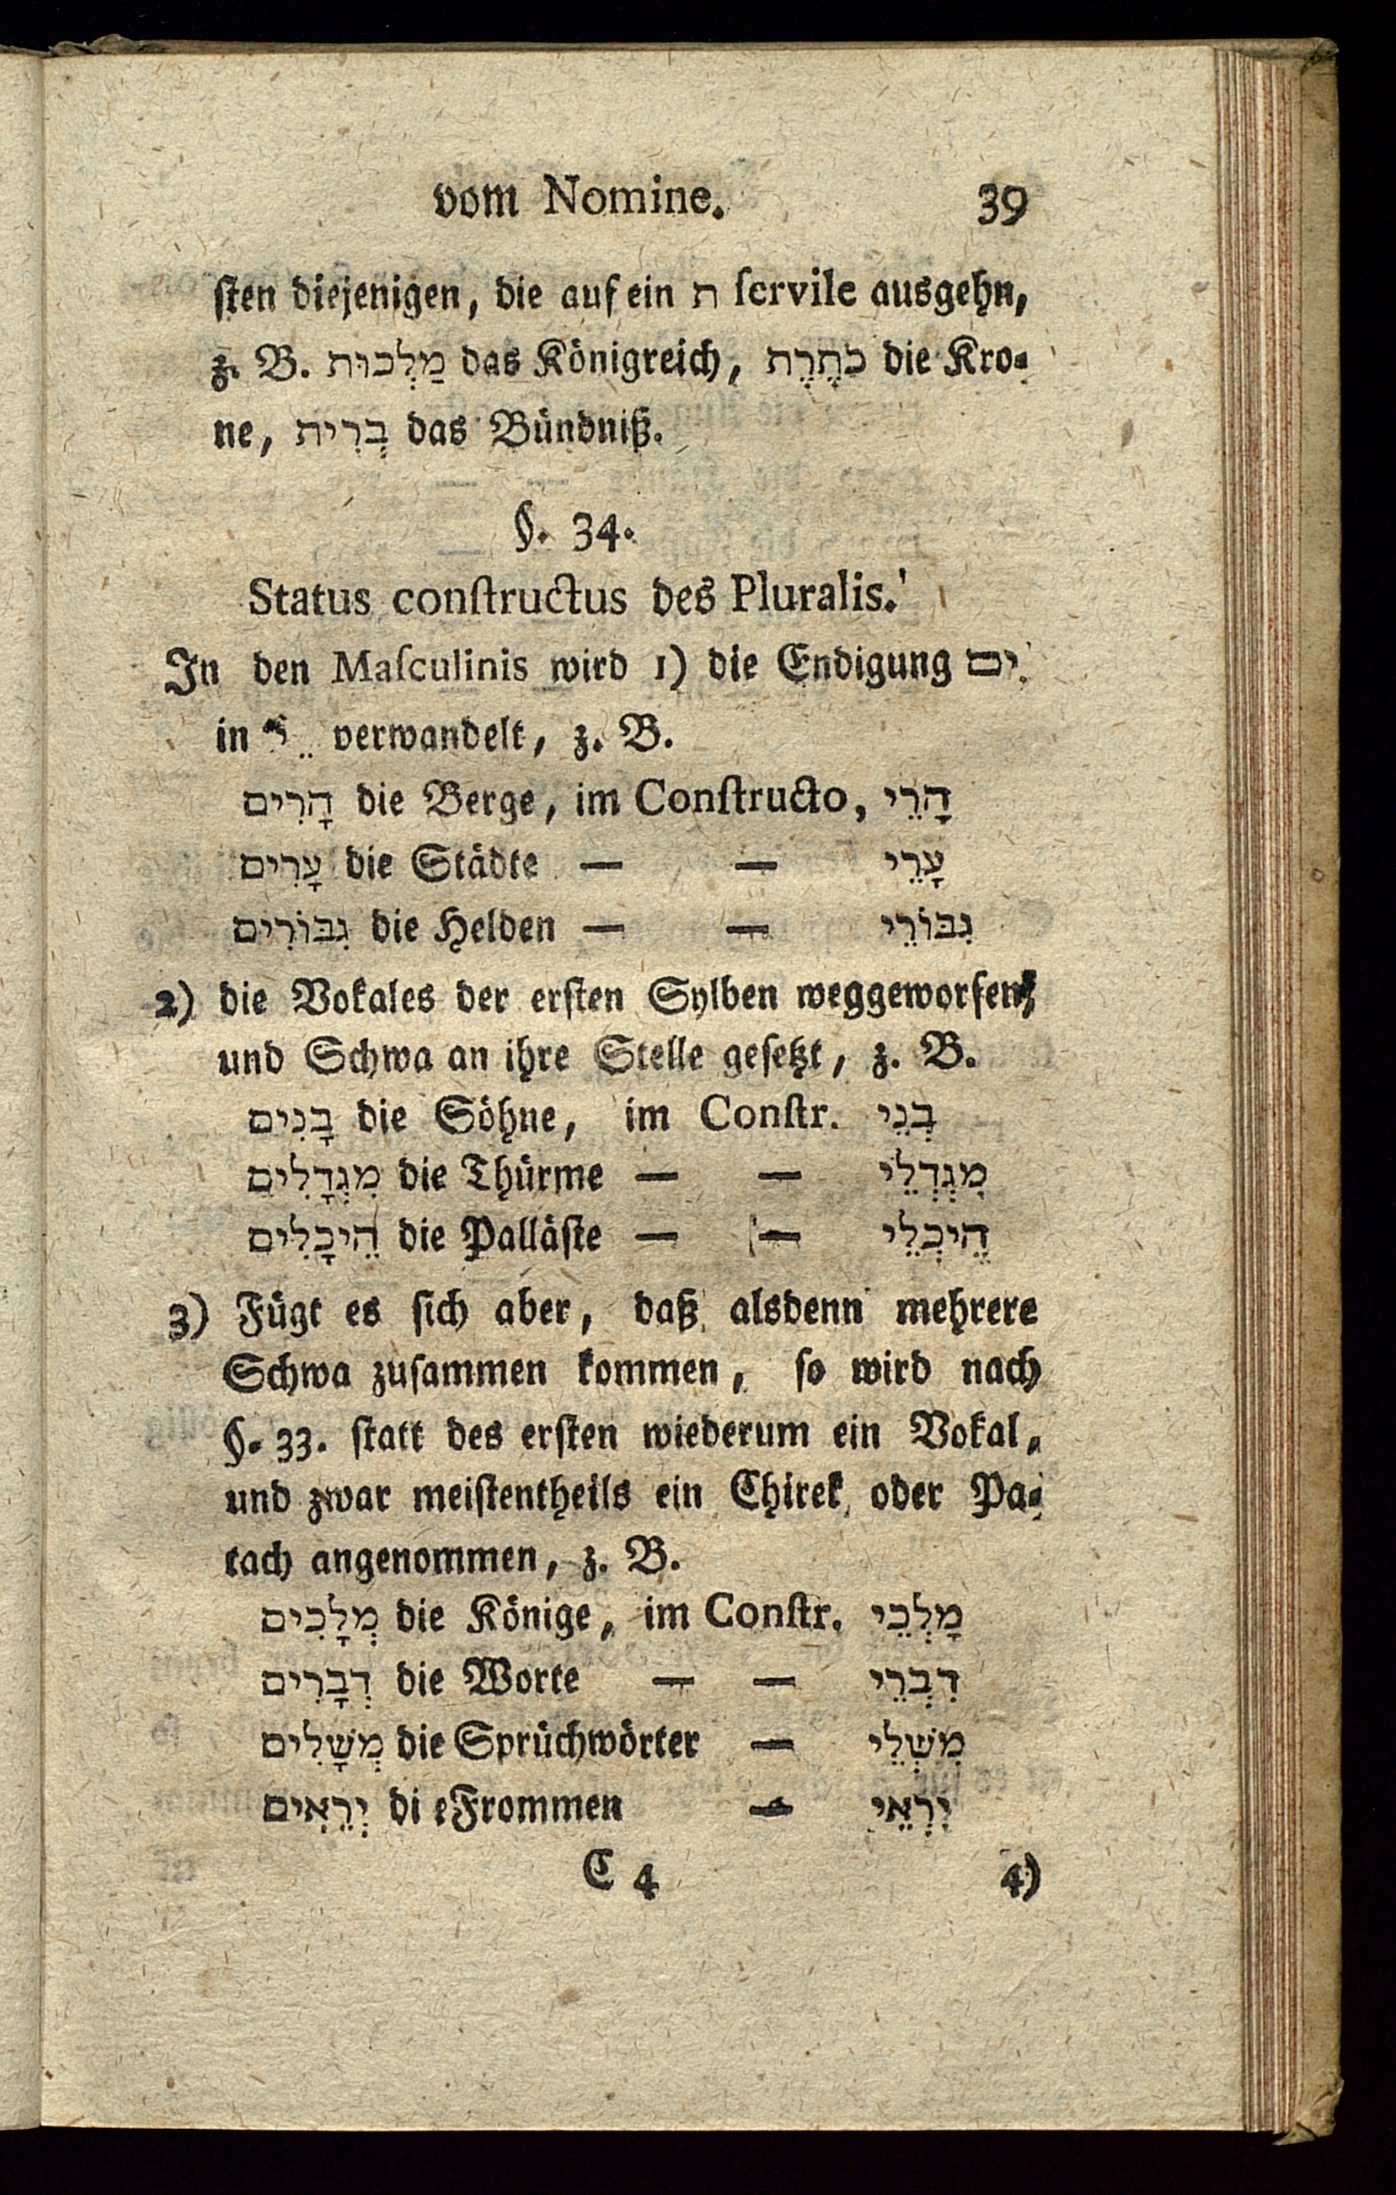 vom Nomine. 39
ſten diejenigen, die auf ein ת ſervile ausgehn,
z. B. מַלְכוּת das Königreich, כֹּתֶרֶת die Kro-
ne, בְּרִית das Bündniß.
§. 34.
Status conſtructus des Pluralis.
In den Maſculinis wird 1) die Endigung ִים
in ֵי verwandelt, z. B.
הָרִים die Berge, im Conſtructo, הָרֵי
עָרִים die Städte — — עָרֵי
גִבּוֹרִים die Helden — — גִבּוֹרֵי
2) die Vokales der erſten Sylben weggeworfen,
und Schwa an ihre Stelle geſetzt, z. B.
בָּנִים die Söhne, im Conſtr. בְּנֵי
מִגְדָלִים die Thürme — — מִגְדְלֵי
הֵיכָלִים die Palläſte — — הֵיכְלֵי
3) Fügt es ſich aber, daß alsdenn mehrere
Schwa zuſammen kommen, ſo wird nach
§. 33. ſtatt des erſten wiederum ein Vokal,
und zwar meiſtentheils ein Chirek oder Pa-
tach angenommen, z. B.
מְלָכִים die Könige, im Conſtr. מָלְכֵי
דְבָרִים die Worte — — דִבְרֵי
מְשָׁלִים die Sprüchwörter — מִשְׁלֵי
יְרֵאִים di eFrommen — יִרְאֵי
C 4 4)